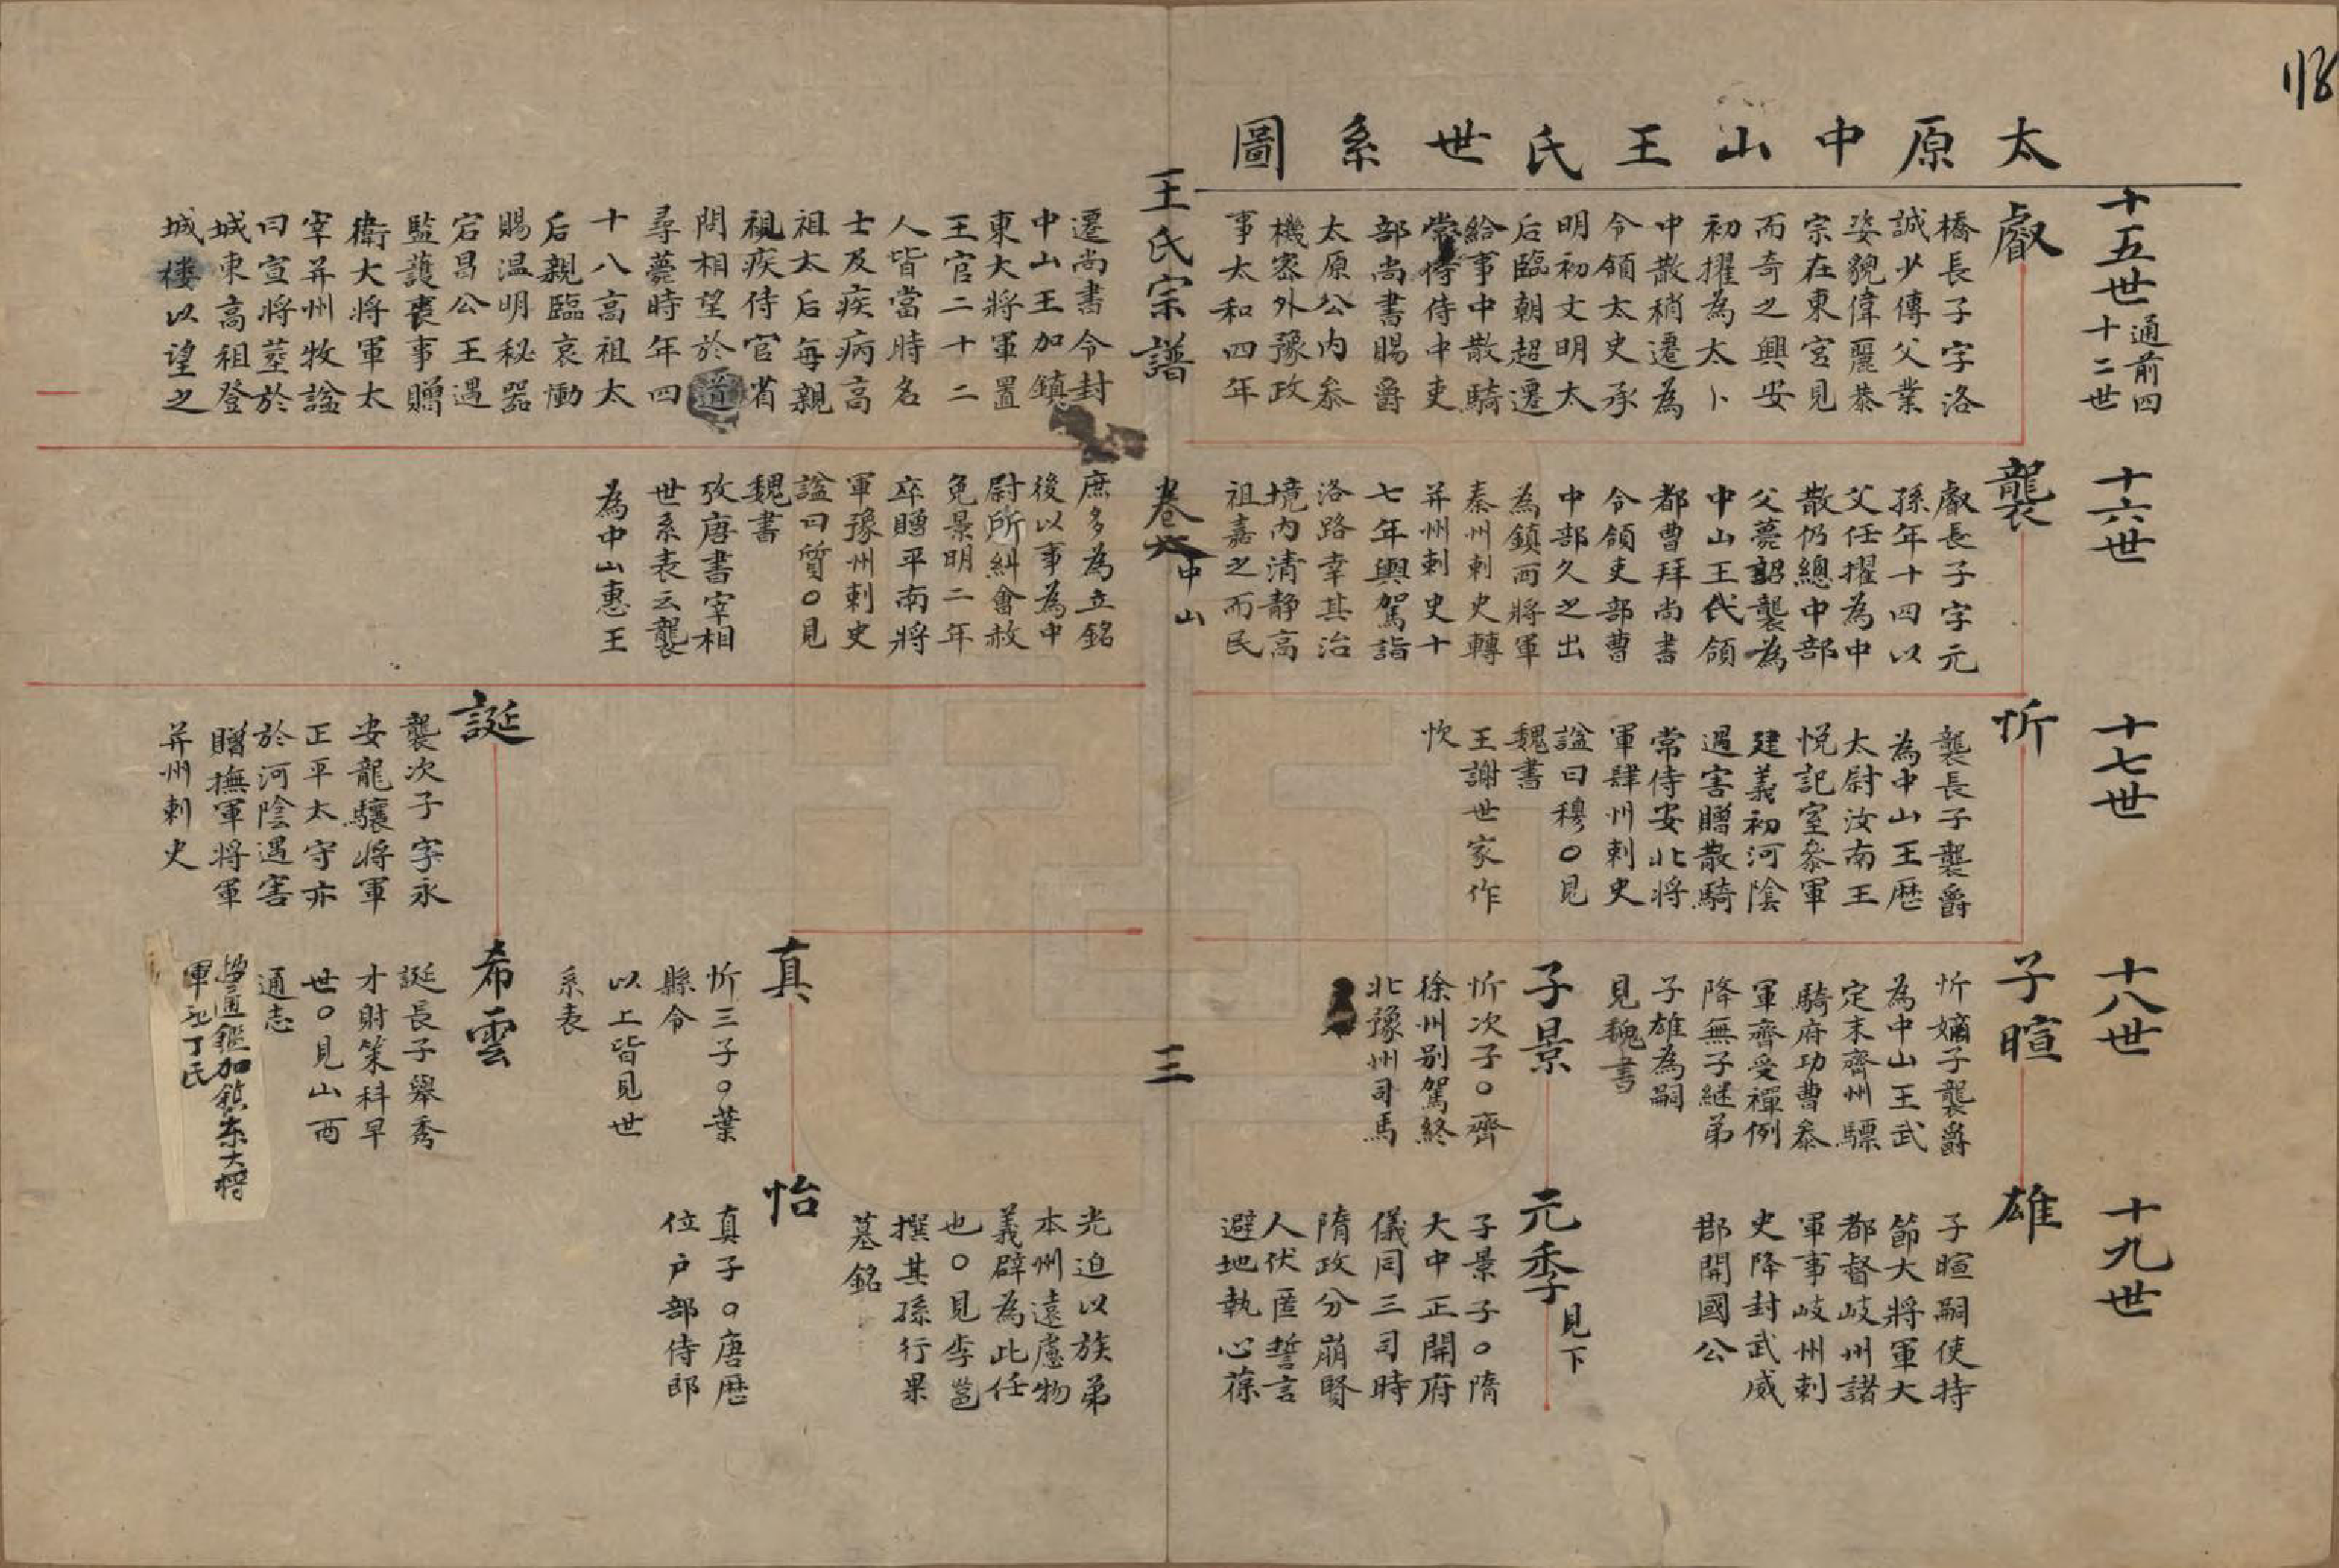 118
太原中山王氏世系圖
十五世
通前四
十二世
叡
橋長子字洛
誠少傳父業
姿貌偉麗恭
宗在東宮見
而奇之興安
初擢為太卜
中散稍遷為
令領太史承
明初文明太
后臨朝超遷
給事中散騎
常侍侍中吏
部尚書賜爵
太原公内叅
機密外豫政
事太和四年
遷尚書令封
中山王加鎮
東大將軍置
王官二十二
人皆當時名
士及疾病高
祖太后每親
視疾侍官省
問相望於道
尋薨時年四
十八高祖太
后親臨哀慟
賜温明秘器
宕昌公王遇
監護喪事贈
衛大將軍太
宰并州牧謚
曰宣將塟於
城東高祖登
城樓以望之
十六世
襲
叡長子字元
孫年十四以
父任擢為中
散仍總中部
父薨詔襲為
中山王代領
都曹拜尚書
令領吏部曹
中部久之出
為鎮西將軍
秦州刺史轉
并州刺史十
七年輿駕詣
洛路幸其治
境内清静高
祖嘉之而民
庶多為立銘
後以事為中
尉所糾會赦
免景明二年
卒贈平南將
軍豫州刺史
謚曰質○見
魏書
攷唐書宰相
世系表云襲
為中山惠王
十七世
忻
襲長子襲爵
為中山王歷
太尉汝南王
悦記室叅軍
建義初河陰
遇害贈散騎
常侍安北將
軍肆州刺史
謚曰穆○見
魏書
王謝世家作
忺
誕
襲次子字永
安龍驤將軍
正平太守亦
於河陰遇害
贈撫軍將軍
并州刺史
十八世
子暄
忻嫡子襲爵
為中山王武
定末齊州驃
騎府功曹叅
軍齊受禪例
降無子繼弟
子雄為嗣
見魏書
子景
忻次子○齊
徐州别駕終
北豫州司馬
真
忻三子○葉
縣令
以上皆見世
系表
希雲
誕長子舉秀
才射策科早
世○見山西
通志
鑑加鎮東大將
十九世
雄
子暄嗣使持
節大將軍大
都督岐州諸
軍事岐州刺
史降封武威
郡開國公
元季
見下
子景子○隋
大中正開府
儀同三司時
隋政分崩賢
人伏匿誓言
避地執心葆
光迫以族弟
本州遠慮物
義辟為此任
也○見李邕
撰其孫行果
墓銘
怡
真子○唐歷
位户部侍郎
王氏宗譜
卷
中山
三